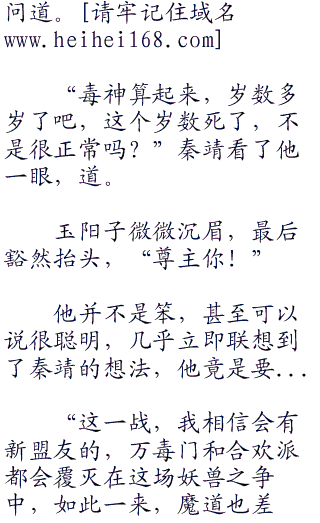 问道。[请牢记住域名
www.heihei168.com]
“毒神算起来，岁数多
岁了吧，这个岁数死了，不
是很正常吗？”秦靖看了他
一眼，道。
玉阳子微微沉眉，最后
豁然抬头，“尊主你！”
他并不是笨，甚至可以
说很聪明，几乎立即联想到
了秦靖的想法，他竟是要...
“这一战，我相信会有
新盟友的，万毒门和合欢派
都会覆灭在这场妖兽之争
中，如此一来，魔道也差